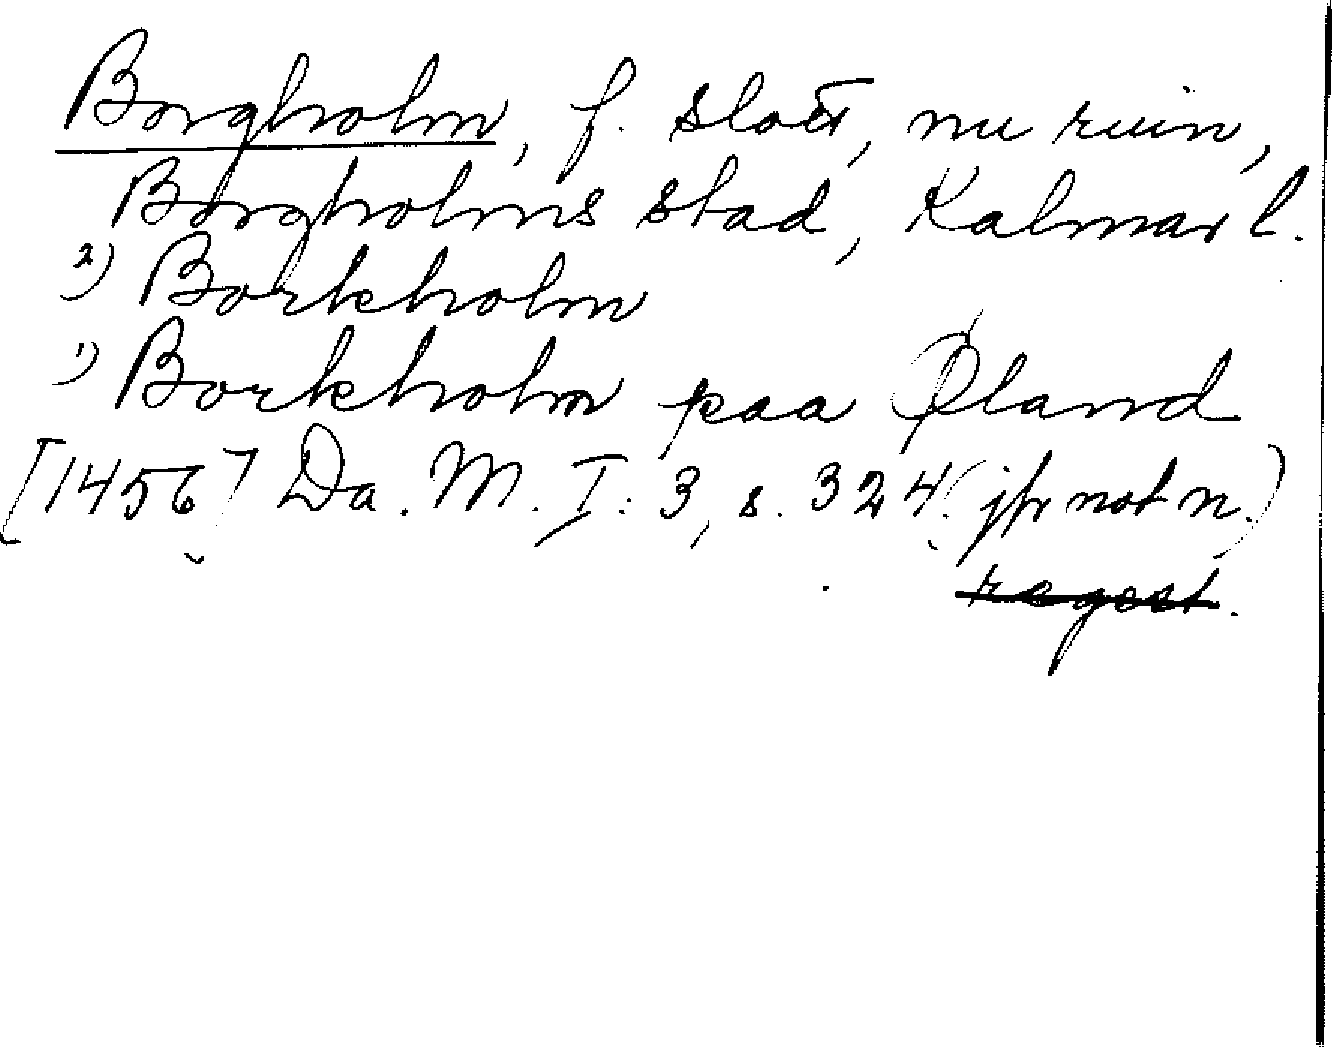 Borgholm, f. slott, nu ruin,
Borgholms stad, Kalmar l.
2) Borkholm
1) Borkholm paa Øland
[1456] Da. M. I: 3, s. 324 (jfr not n.)
regest.